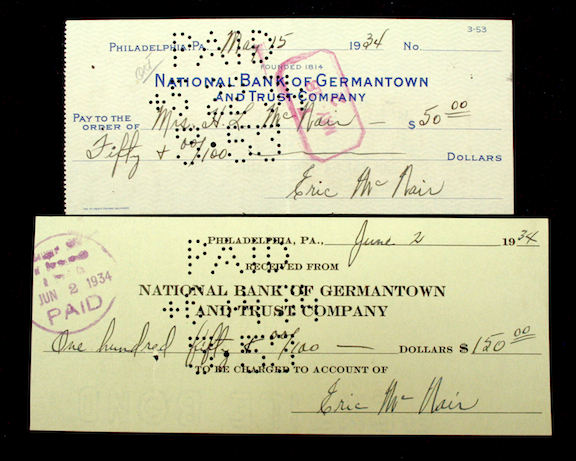 3-53
PHILADELPHIA, PA. May 15 1934 No.
FOUNDED 1814
NATIONAL BANK OF GERMANTOWN
AND TRUST COMPANY
PAY TO THE
ORDER OF Mrs. H. L. Mc Nair — $50.00
Fifty + 00/100 DOLLARS
Eric Mc Nair
PAID
PHILADELPHIA, PA., June 2 1934
RECEIVED FROM
NATIONAL BANK OF GERMANTOWN
AND TRUST COMPANY
One hundred fifty + 00/100 — DOLLARS $150.00
TO BE CHARGED TO ACCOUNT OF
Eric Mc Nair
PAID
JUN 2 1934
PAID